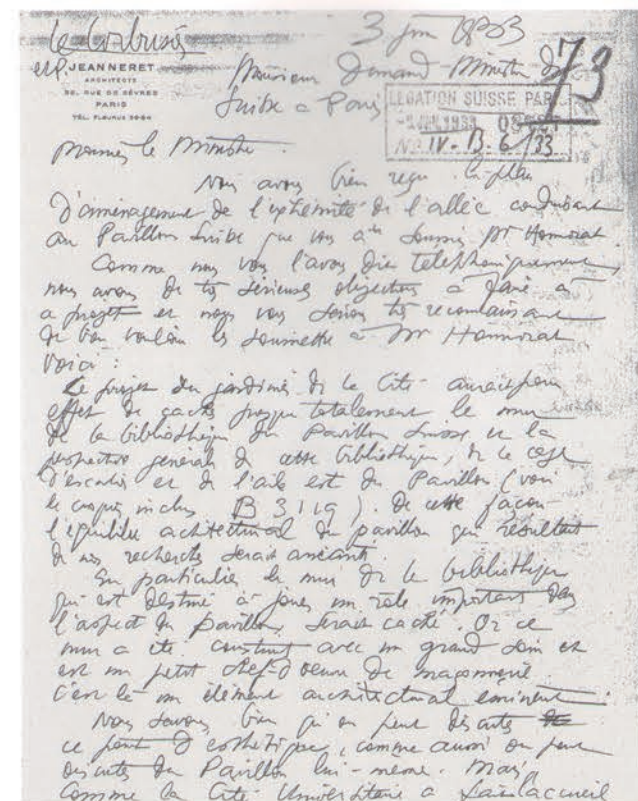 le Corbusier
et P. JEANNERET
ARCHITECTE
35, RUE DE SÈVRES
PARIS
TÉL. FLEURUS
3 juin 1933
73
Monsieur Dunand Ministre de
Suisse à Paris
LEGATION SUISSE PARIS
N° IV-B-6/33
Monsieur le Ministre.
Nous avons bien reçu le plan
d'aménagement de l'extrémité de l'allée conduisant
au Pavillon Suisse que vous a soumis Mr Honnorat
Comme nous vous l'avons dit téléphoniquement,
nous avons de très sérieuses objections à faire à
ce projet et nous vous serions très reconnaissant
de bien vouloir les soumettre à Mr Honnorat
Voici :
Le projet du jardinier de la Cité aurait pour
effet de cacher presque totalement le mur
de la bibliothèque du Pavillon Suisse et la
perspective générale de cette bibliothèque, de la cage
d'escalier et de l'aile est du Pavillon (voir
le croquis inclus B 3119). De cette façon
l'équilibre architectural du pavillon qui résultait
de nos recherches serait anéanti.
En particulier le mur de la bibliothèque
qui est destiné à jouer un rôle important dans
l'aspect du pavillon, serait caché. Or ce
mur a été construit avec un grand soin et
est un petit chef-d'oeuvre de maçonnerie
c'est là un élément architectural éminent.
Nous savons bien qu'on peut discuter
ce point d'esthétique, comme aussi on peut
discuter du Pavillon lui-même. Mais,
Comme la Cité Universitaire a fait accueil